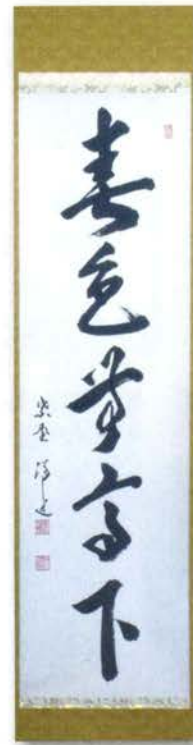 春色無高下
紫野